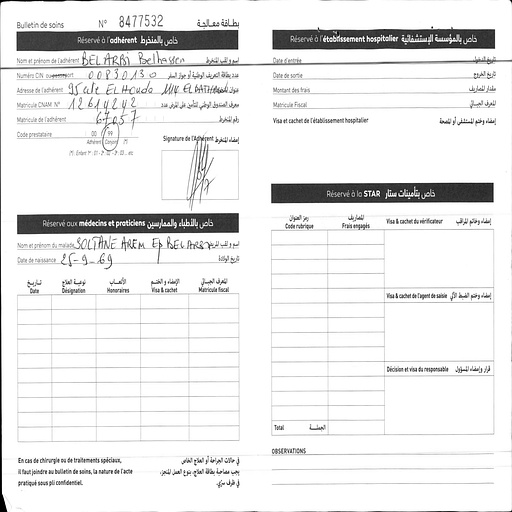 Bulletin de soins N° 8477532 بطاقة معالجة
Réservé à l'adhérent خاص بالمنخرط
Nom et prénom de l'adhérent BELARBI Belhassen اسم و لقب المنخرط
Numéro CIN ou passeport 00830130 عدد بطاقة التعريف الوطنية أو جواز السفر
Adresse de l'adhérent 95 cite ELHouda عنوان المنخرط
Matricule CNAM N° 12614242
Matricule de l'adhérent 67057 رقم المنخرط
Code prestataire 00 99
Adhérent Conjoint (*)
(*) : Enfant 1er : 01 - 2 : 02 - 3 : 03 ... etc
Signature de l'Adhérent إمضاء المنخرط
Réservé aux médecins et praticiens خاص بالأطباء والممارسين
Nom et prénom du malade SOLTANE AREM Ep BELARBI اسم و لقب المريض
Date de naissance 25-9-69 تاريخ الولادة
تاريخ نوعية العلاج الأتعاب الإمضاء و الختم المعرف الجبائي
Date Désignation Honoraires Visa & cachet Matricule fiscal
En cas de chirurgie ou de traitements spéciaux,
il faut joindre au bulletin de soins, la nature de l'acte
pratiqué sous pli confidentiel.
في حالات الجراحة أو العلاج الخاص
يجب مصاحبة بطاقة العلاج، بنوع العمل المنجز،
في ظرف سري.
Réservé à l'établissement hospitalier خاص بالمؤسسة الإستشفائية
Date d'entrée تاريخ الدخول
Date de sortie تاريخ الخروج
Montant des frais مقدار المصاريف
Matricule Fiscal المعرف الجبائي
Visa et cachet de l'établissement hospitalier إمضاء وختم المستشفى أو المصحة
Réservé à la STAR خاص بتأمينات ستار
رمز العنوان المصاريف
Code rubrique Frais engagés
Visa & cachet du vérificateur إمضاء وخاتم المراقب
Visa & cachet de l'agent de saisie إمضاء وختم الضبط الآلي
Décision et visa du responsable قرار وإمضاء المسؤول
Total الجملة
OBSERVATIONS